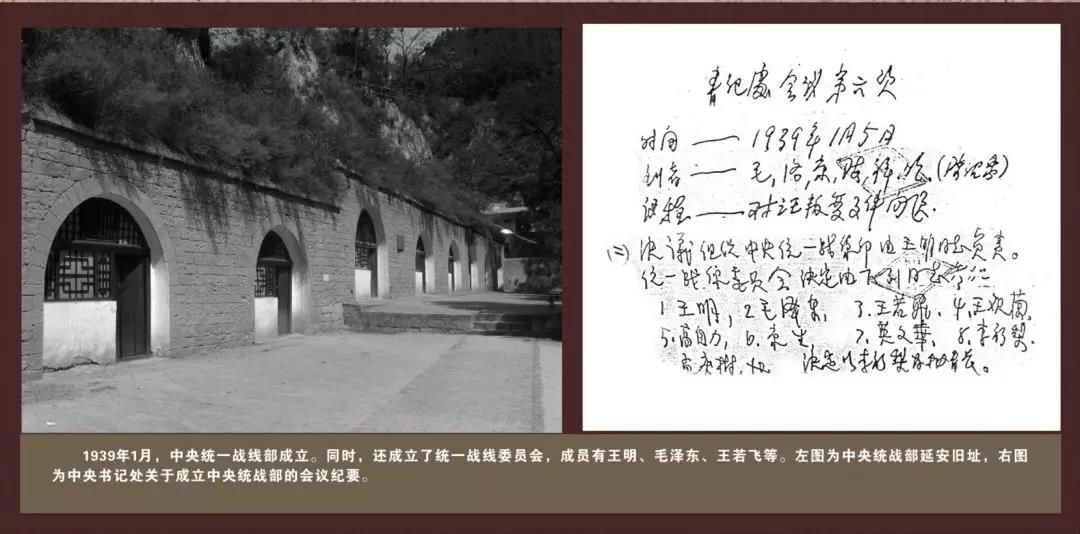 书记处会议第六次
时间 —— 1939年1月5日
到者 —— 毛,洛,康,陈,
议程 ——
(二) 决议组织中央统一战线部由王明同志负责。
统一战线委员会决定由下列同志
1.王明, 2.毛泽东, 3.王若飞, 4.王
5.高自力, 6.康生, 7.吴文华, 8.李初梨,
决定以李初梨
1939年1月,中央统一战线部成立。同时,还成立了统一战线委员会,成员有王明、毛泽东、王若飞等。左图为中央统战部延安旧址,右图
为中央书记处关于成立中央统战部的会议纪要。